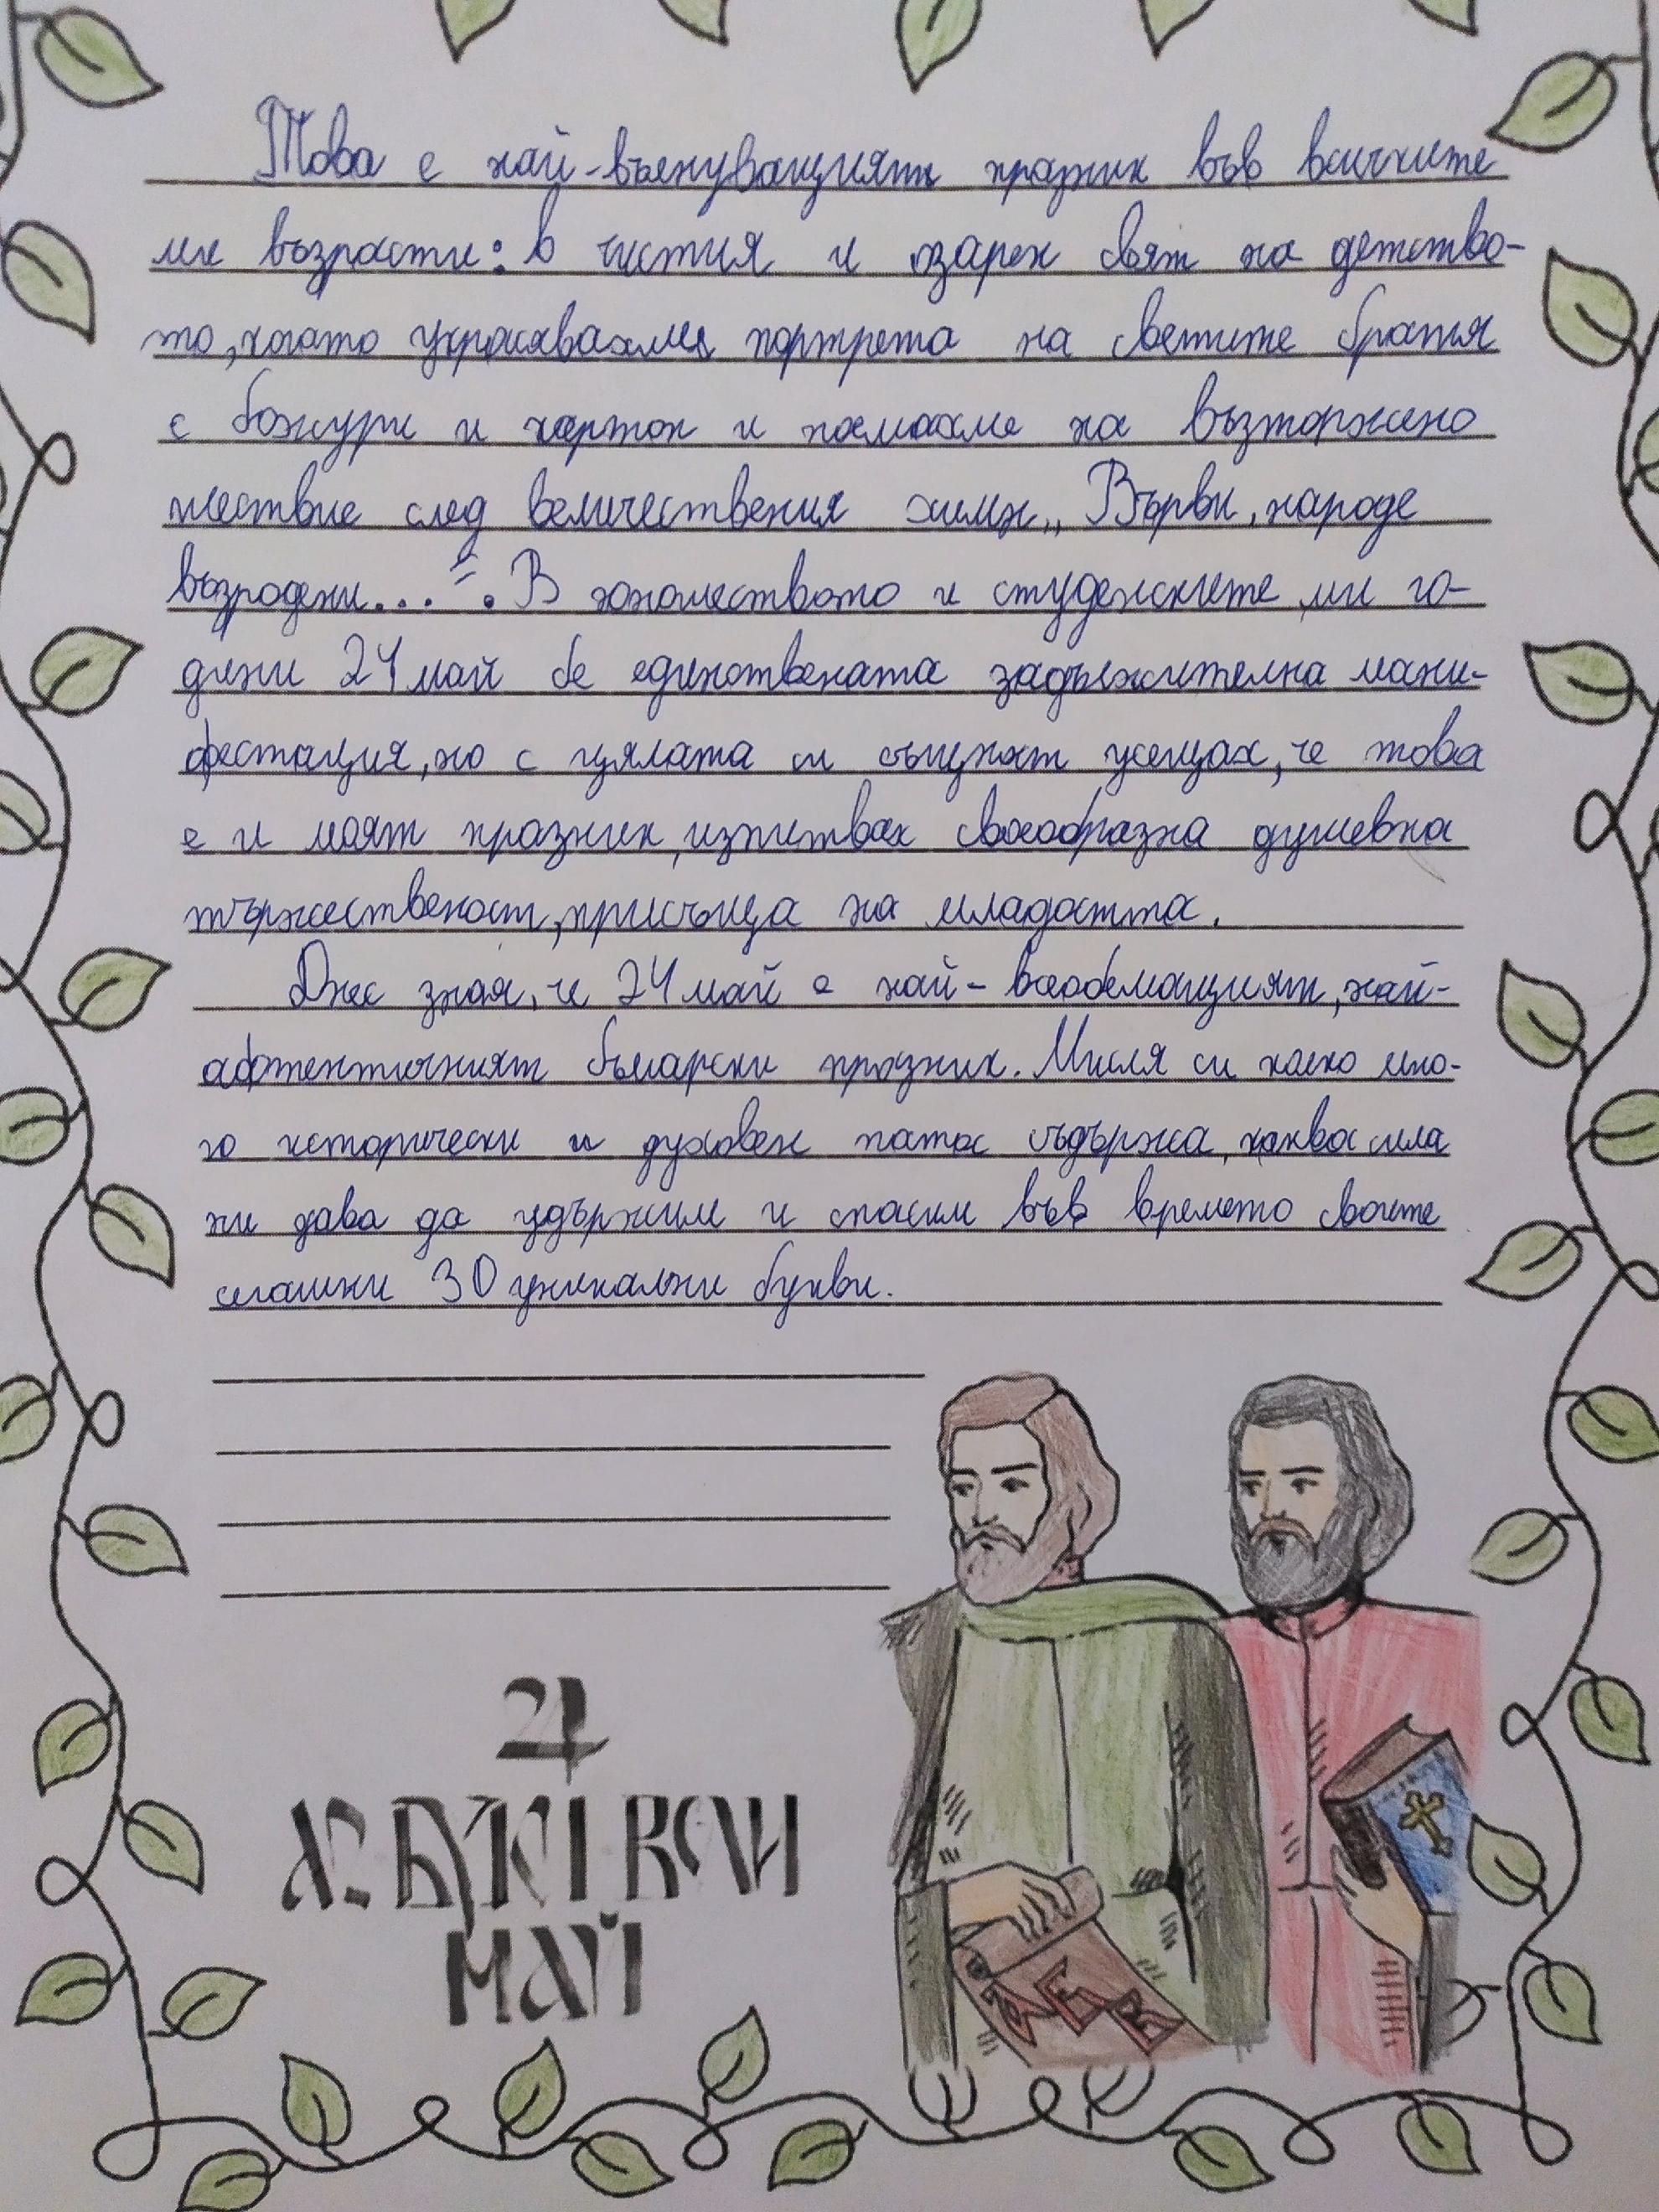 Това е най-вълнуващият празник във всичките
ми възрасти: в чистия и озарен свят на детство-
то, когато украсявахме портрета на светите братя
с божури и картон и поемахме на възторжено
шествие след величествения химн „Върви, народе
възродени...“. В юношеството и студенските ми го-
дини 24 май бе единствената задължителна мани-
фестация, но с цялата си същност усещах, че това
е и моят празник, изпитвах своеобразна душевна
тържественост, присъща на младостта.
Днес зная, че 24 май е най-всеобемащият, най-
афтентичният български празник. Мисля си колко мно-
го исторически и духовен патос съдържа, каква сила
ни дава да удържим и спасим във времето своите
сегашни 30 уникални букви.
24
АЗ БУКИ ВЕДИ
МАЙ
А Б В